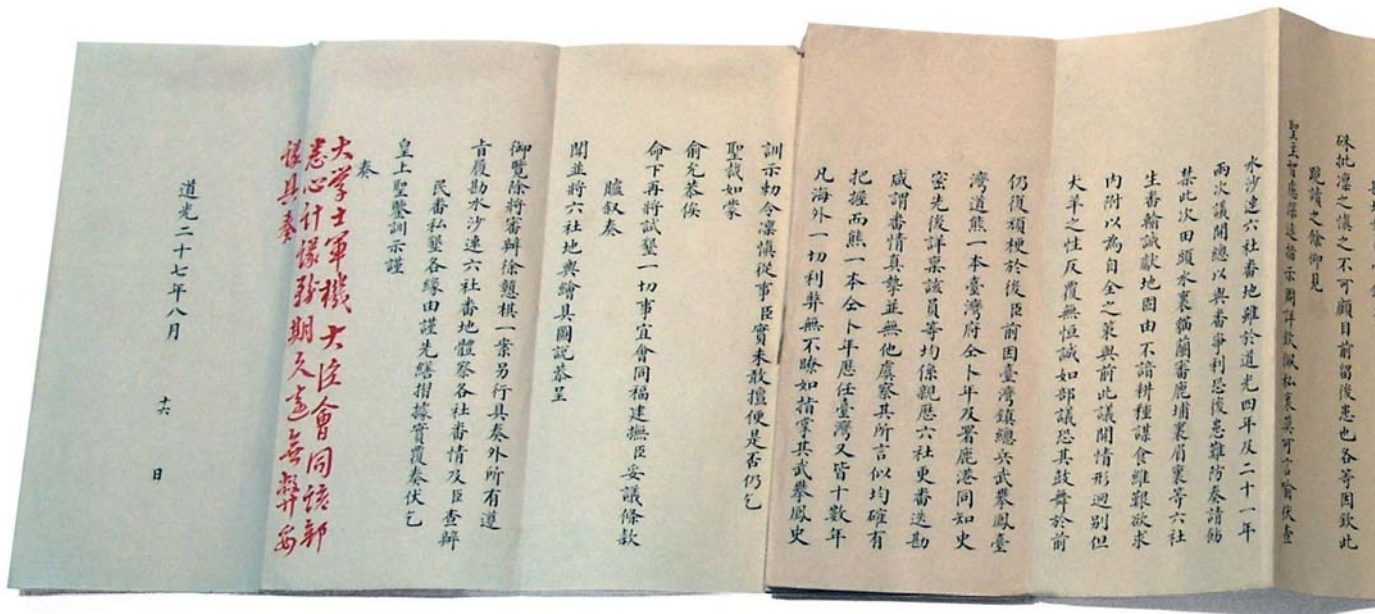 硃批凜之慎之不可顧目前留後患也各等因欽此
跪讀之餘仰見
聖主智慮深遠指示周詳欽佩私衷莫可言喻伏查
水沙連六社番地雖於道光四年及二十一年
兩次議開總以與番爭利恐後患難防奏請飭
禁此次田頭水裏貓蘭審鹿埔裏眉裏等六社
生番輸誠獻地固由不諳耕種謀食維艱欲求
內附以為自全之策與前此議開情形迥別但
犬羊之性反覆無恒誠如部議恐其鼓舞於前
仍復頑梗於後臣前因臺灣鎮總兵武攀鳳臺
灣道熊一本臺灣府仝卜年及署鹿港同知史
密先後詳稟該員等均係親歷六社更番迭勘
咸謂番情真摯並無他虞察其所言似均確有
把握而熊一本仝卜年歷任臺灣又皆十數年
凡海外一切利弊無不瞭如指掌其武攀鳳史
訓示勅令凜慎從事臣實未敢擅便是否仍乞
聖裁如蒙
俞允恭俟
命下再將試墾一切事宜會同福建撫臣妥議條款
臚叙奏
聞並將六社地輿繪具圖說恭呈
御覽除將審辦徐憩棋一案另行具奏外所有遵
旨履勘水沙連六社番地體察各社番情及臣查辦
民番私墾各緣由謹先繕摺據實覆奏伏乞
皇上聖鑒訓示謹
奏
大学士軍機大臣會同該部
悉心計議務期久遠無弊妥
議具奏
道光二十七年八月 十六 日